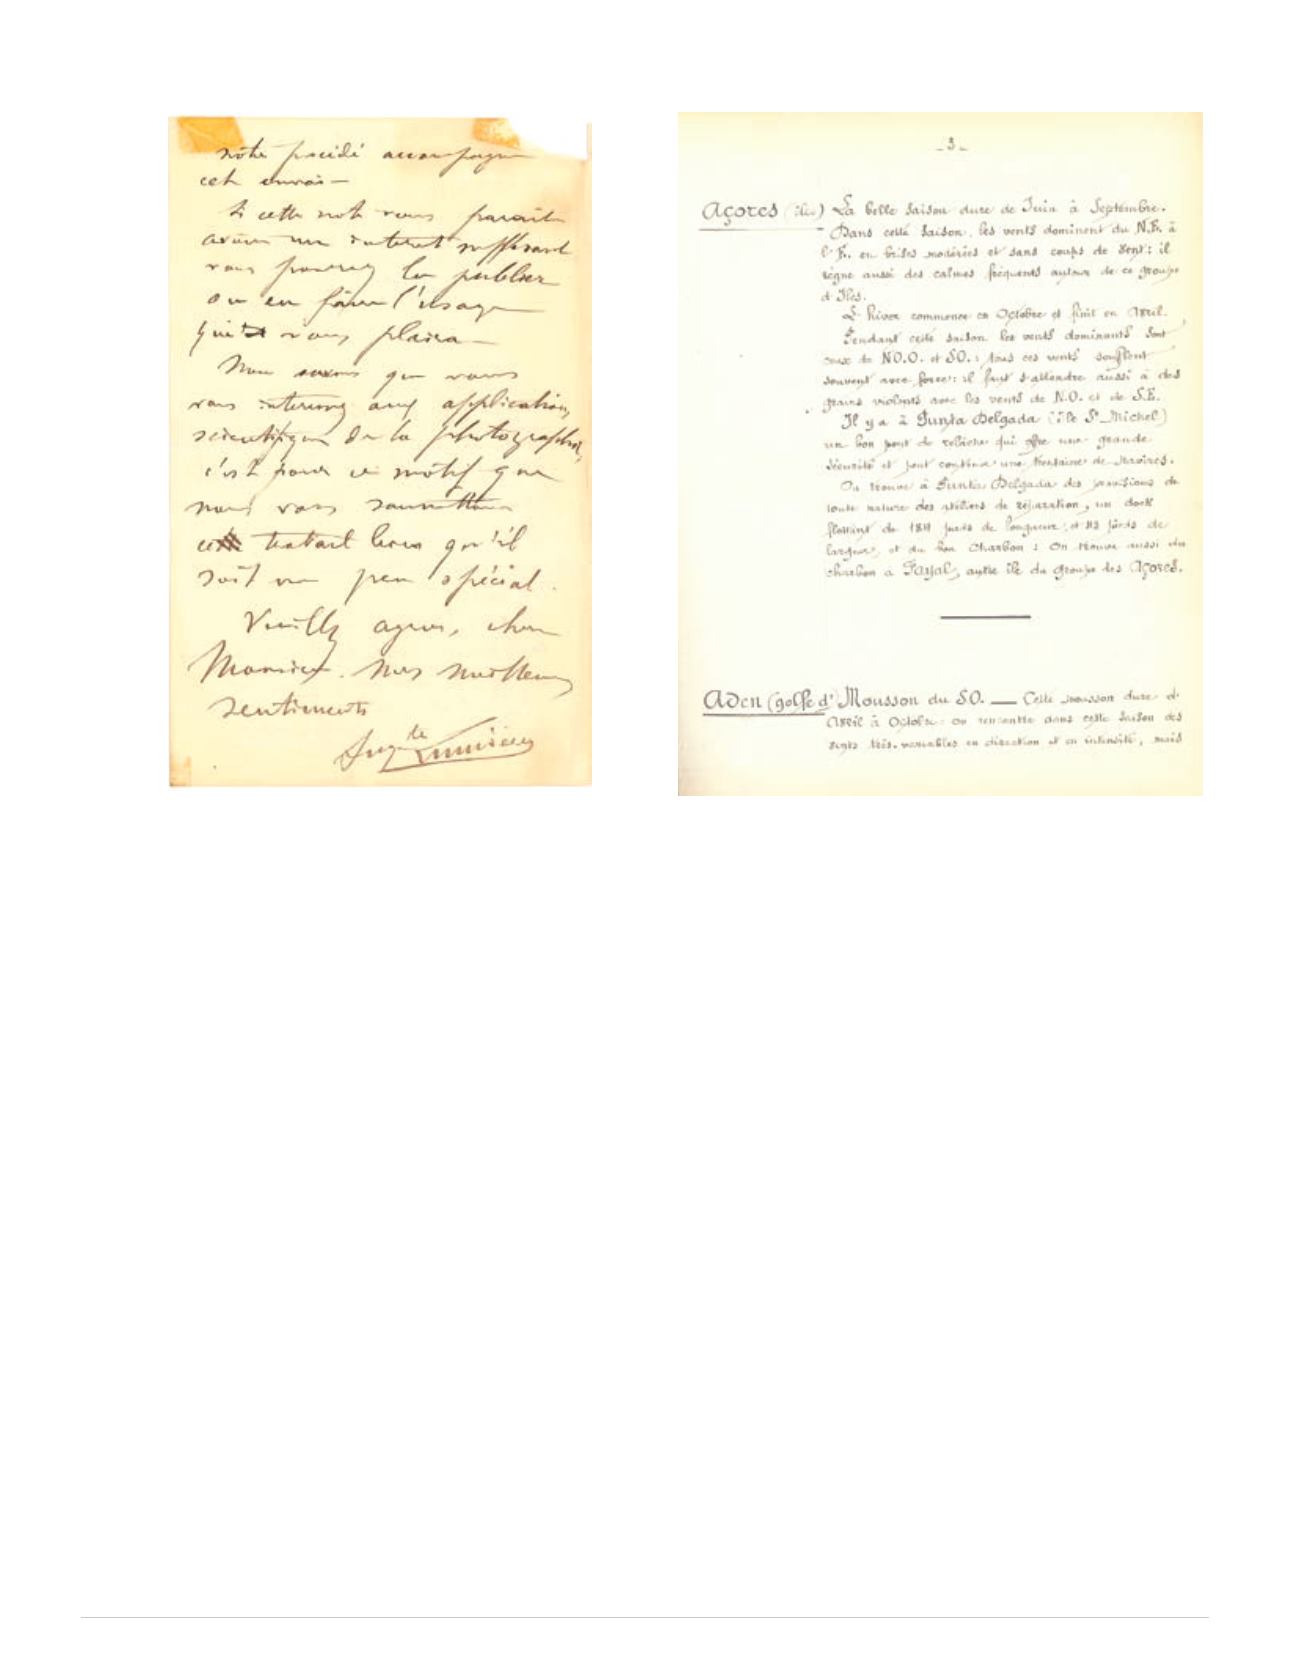 notre procédé accompagne
cet envoi —
Si cette note vous paraît
avoir un intérêt suffisant
vous pourrez la publier
ou en faire l'usage
qui vous plaira —
Nous savons que vous
vous intéressez aux applications
scientifiques de la photographie,
c'est pour ce motif que
nous vous soumettons
ce travail bien qu'il
soit un peu spécial.
Veuillez agréer, cher
Monsieur, nos meilleurs
sentiments
Aug te Lumière
_ 3 _
Açores (îles) La belle saison dure de Juin à Septembre.
Dans cette saison, les vents dominent du N.E. à
l'E. en brises modérées et sans coups de vent : il
règne aussi des calmes fréquents autour de ce groupe
d'Iles.
L'hiver commence en Octobre et finit en Avril.
Pendant cette saison les vents dominants sont
ceux de NO.O. et SO. : tous ces vents soufflent
souvent avec force : il faut s'attendre aussi à des
grains violents avec les vents de N.O. et de S.E.
Il y a à Punta Delgada (île St Michel)
un bon port de relâche qui offre une grande
sécurité et peut contenir une trentaine de navires.
On trouve à Punta Delgada des provisions de
toute nature des ateliers de réparation, un dock
flottant de yards de longueur, et yards de
largeur, et du bon charbon : On trouve aussi du
charbon à Fayal, autre île du groupe des Açores.
Aden (golfe d') Mousson du S.O. — Cette mousson dure d'
Avril à Octobre : on rencontre dans cette saison des
vents très-variables en direction et en intensité, mais